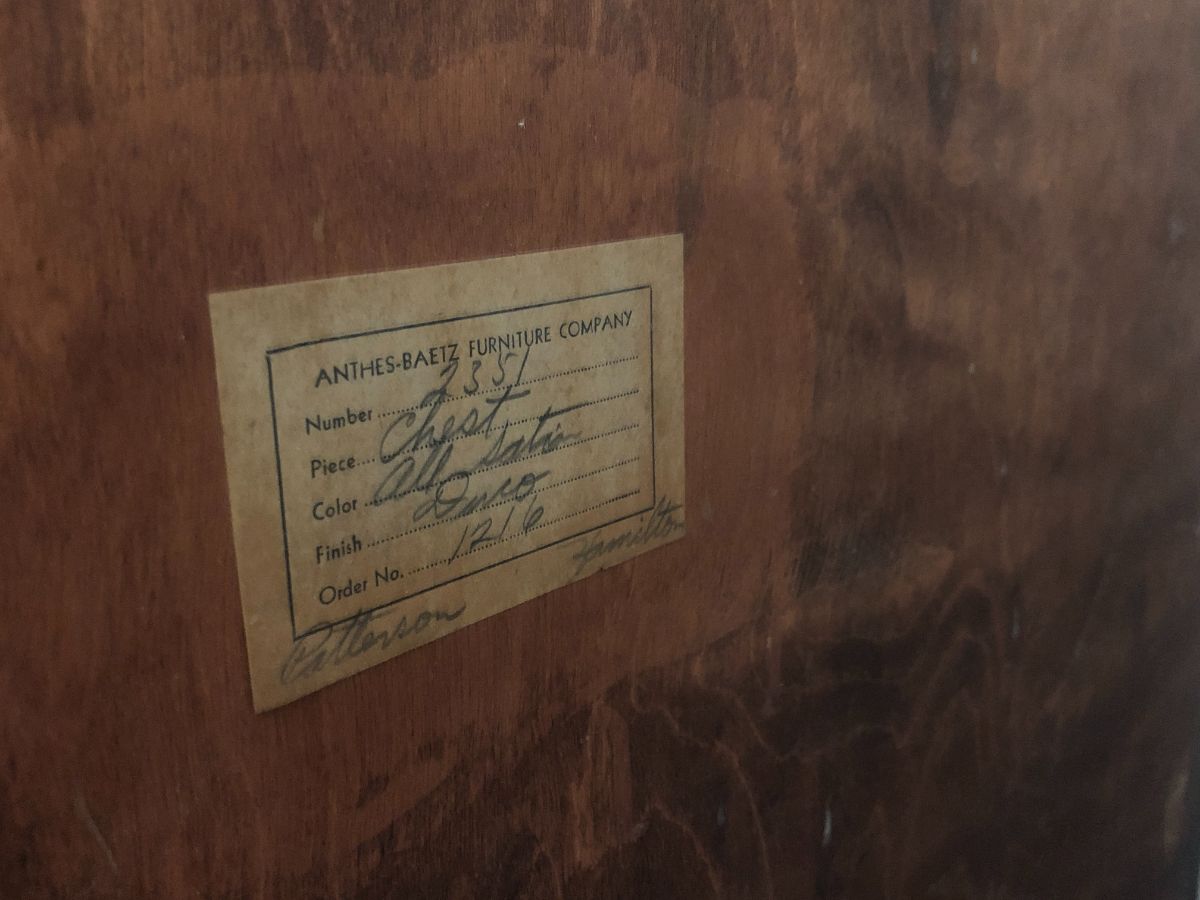 ANTHES-BAETZ FURNITURE COMPANY
Number 2351
Piece Chest
Color All Satin
Finish Duco
Order No. 1216
Patterson Hamilton